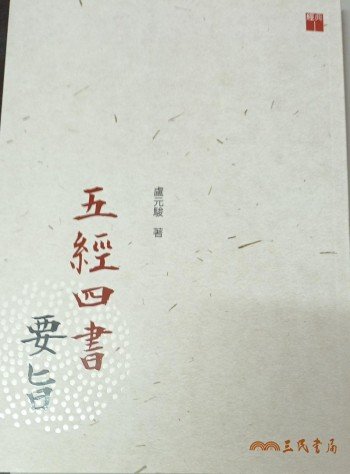 盧元駿 著
五經四書
要旨
三民書局